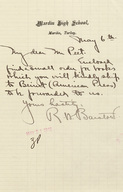 Mardin High School,
Mardin, Turkey.
May 6th
My dear Mr Peet:
Enclosed
find small order for books
which you will kindly ship
to Beirut (American Press)
to be forwarded to us.
Yours
R.